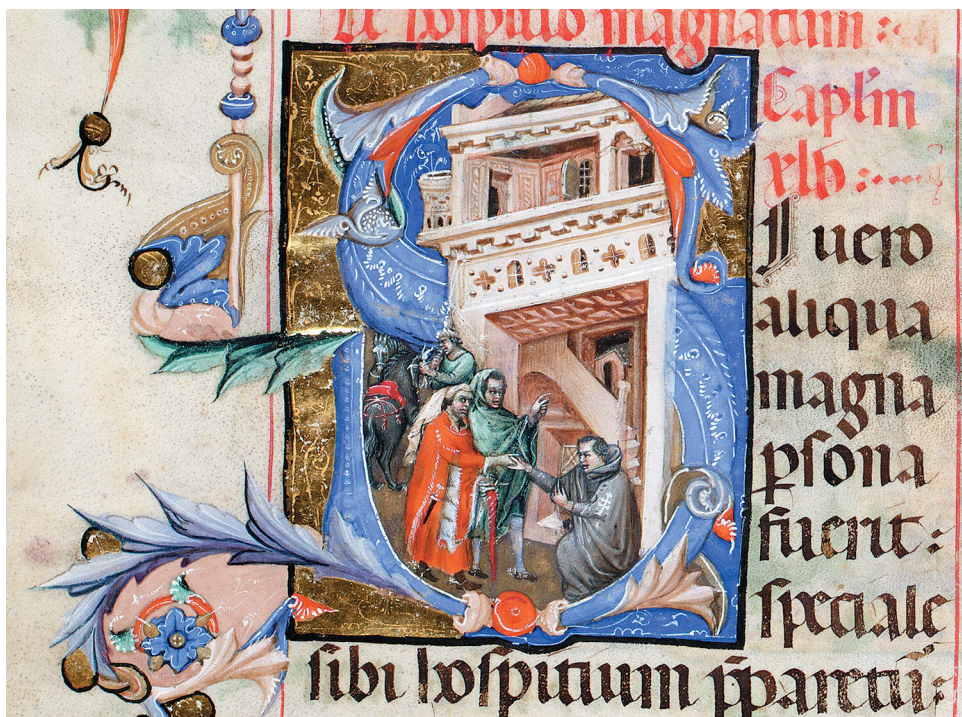 De hospitio magnatum :
Caplm
xlv :
SI uero
aliqua
magna
ꝑsona
fuerit :
speciale
sibi hospitium